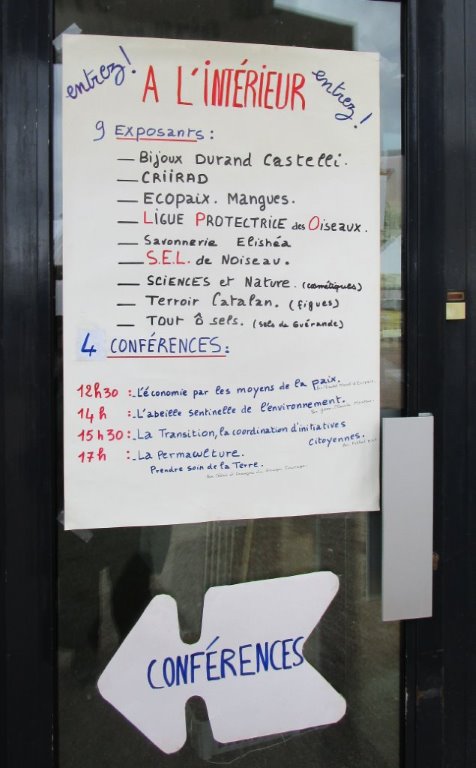 entrez!
A L'INTÉRIEUR
entrez!
9 EXPOSANTS :
— BIJOUX DURAND CASTELLI.
— CRIIRAD
— ECOPAIX. MANGUES.
— LIGUE PROTECTRICE des OISEAUX.
— Savonnerie Elishéa
— S.E.L. de NOISEAU.
— SCIENCES et NATURE. (cosmétiques)
— TERROIR CATALAN. (figues)
— TOUT Ô SELS. (sels de Guérande)
4 CONFÉRENCES :
12h30 :- L'économie par les moyens de la paix.
14h :- L'abeille sentinelle de l'environnement.
15h30 :- La Transition, la coordination d'initiatives
citoyennes.
17h :- La Permaculture.
Prendre soin de la Terre.
CONFÉRENCES